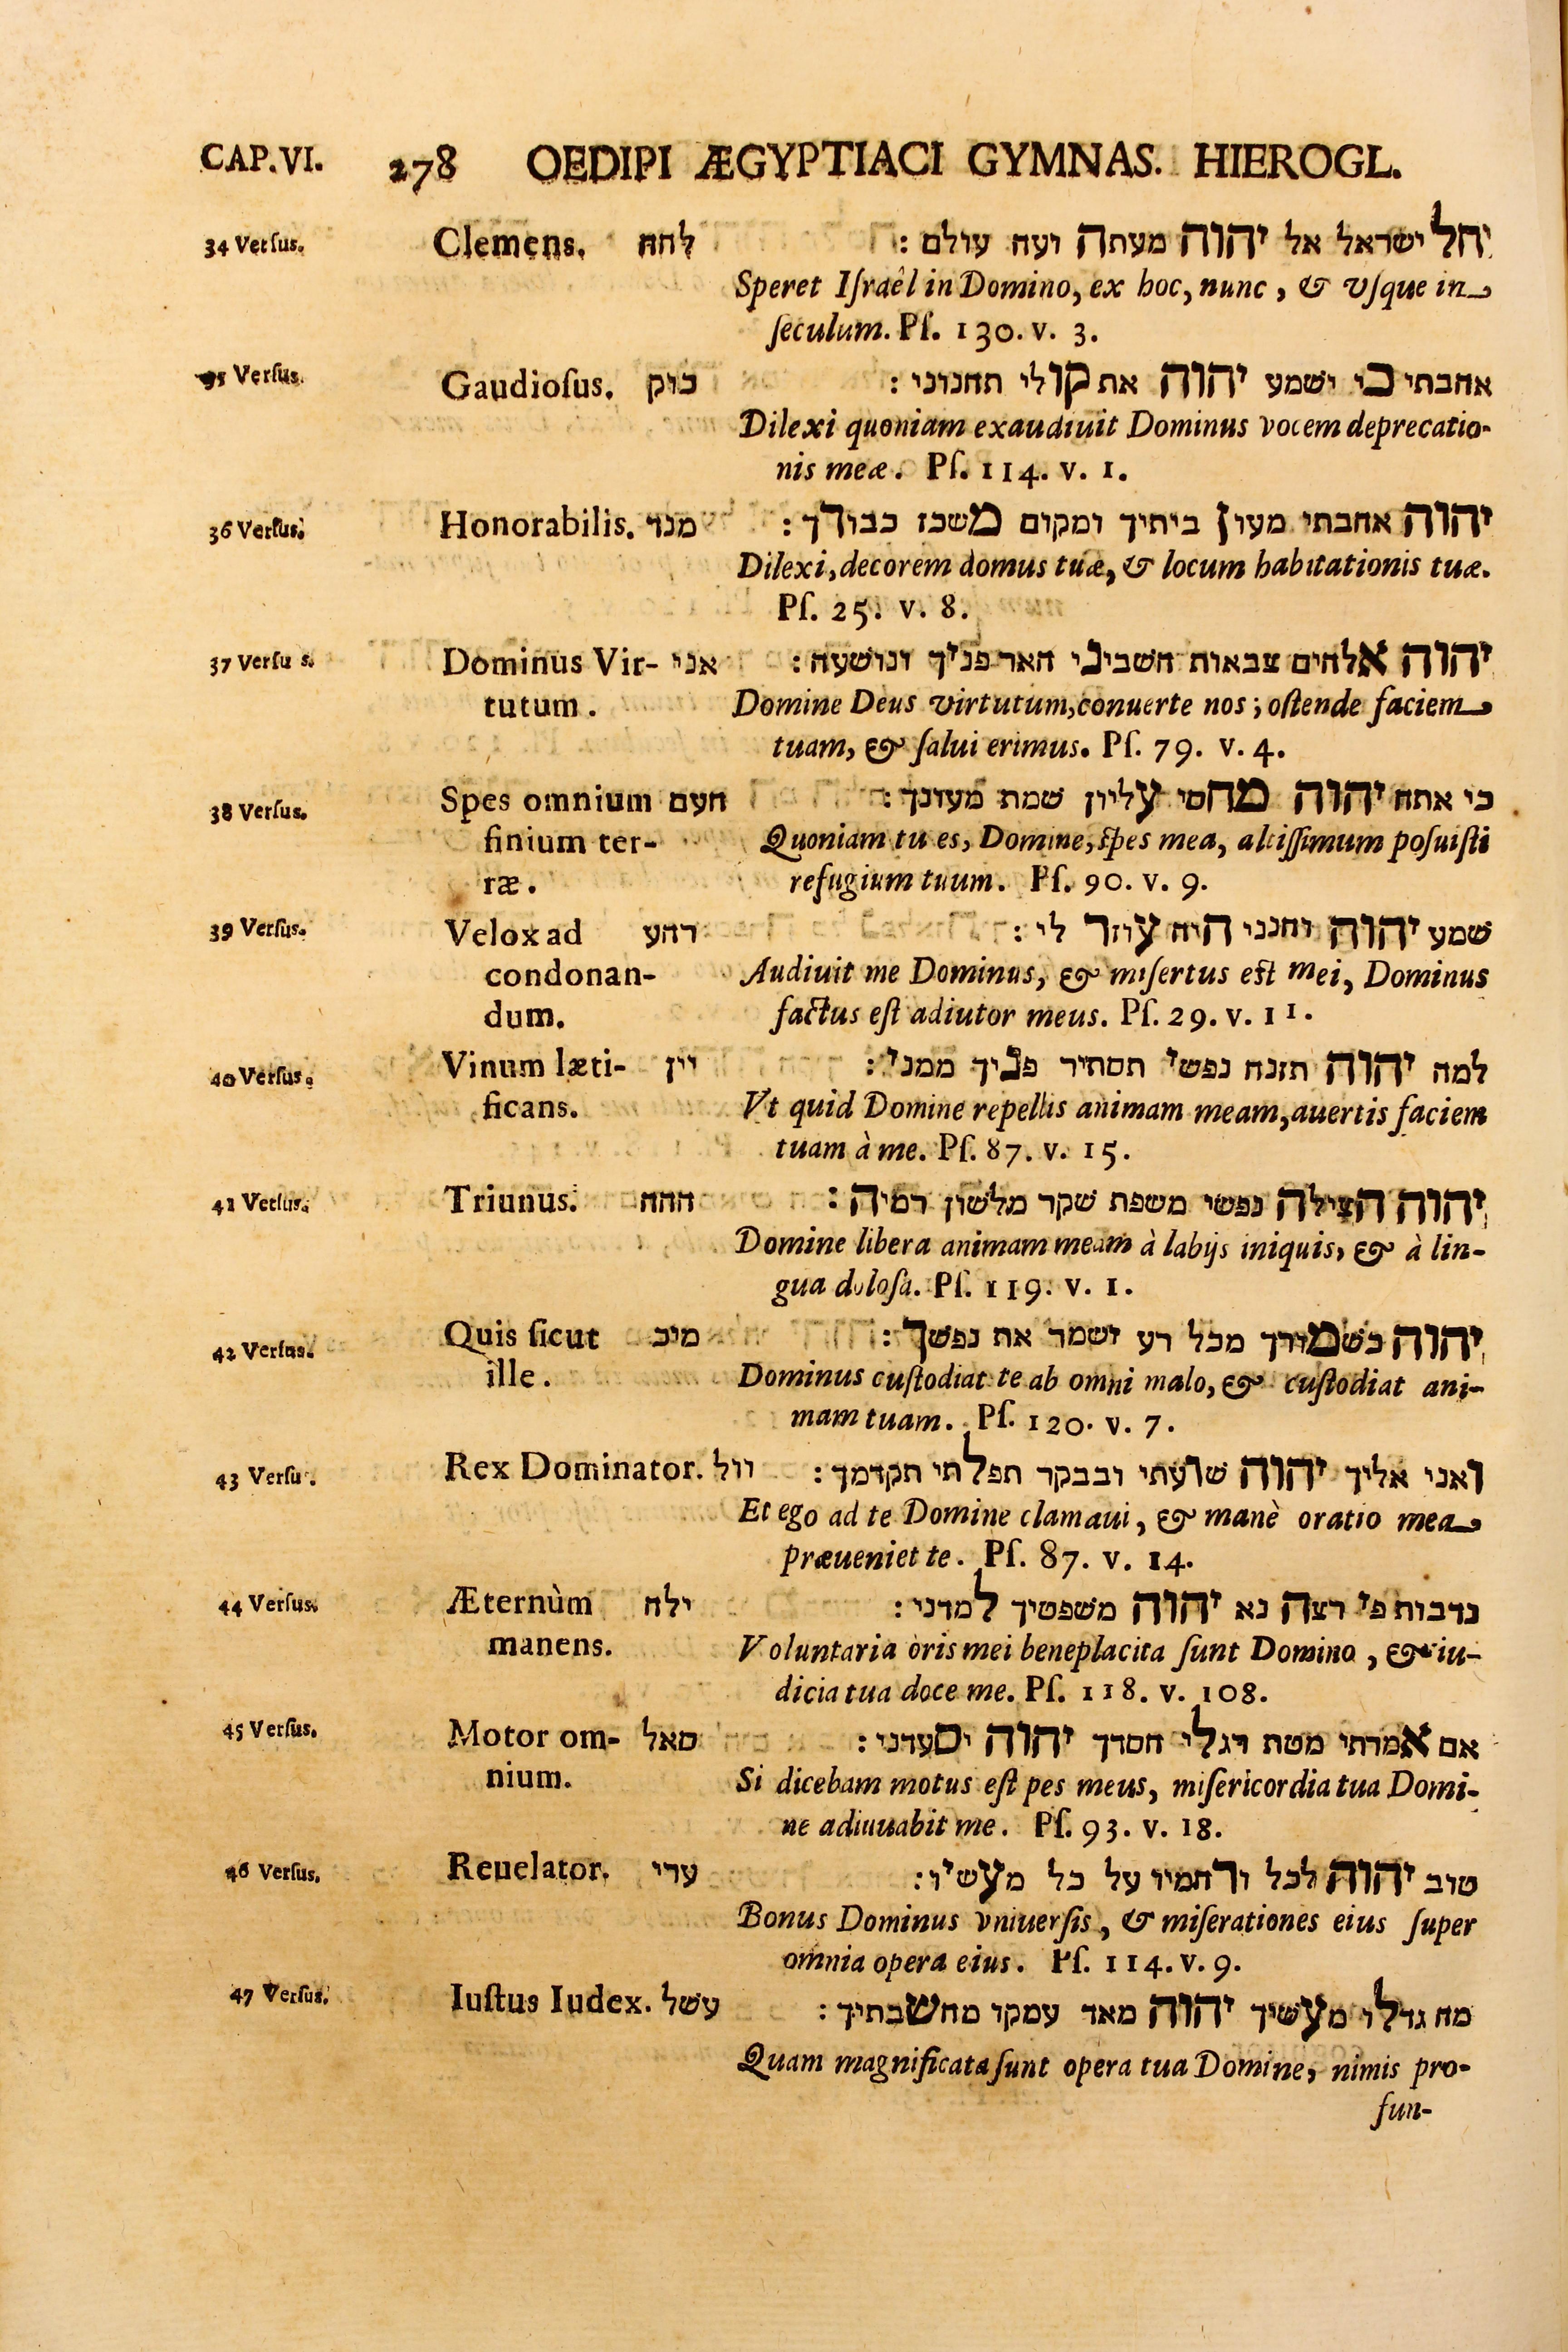 CAP. VI. 278 OEDIPI ÆGYPTIACI GYMNAS. HIEROGL.
34 Verſus. Clemens. לחח יחל ישראל אל יהוה מעתה ועח עולם :
Speret Iſraêl in Domino, ex hoc, nunc, & vſque in
ſeculum. Pſ. 130. v. 3.
35 Verſus. Gaudioſus. כוק אחבתי כי ישמע יהוה את קולי תחנוני :
Dilexi quoniam exaudiuit Dominus vocem deprecatio-
nis meæ. Pſ. 114. v. 1.
36 Verſus. Honorabilis. מנד יהוה אחבתי מעון ביתיך ומקום משכז כבודך :
Dilexi, decorem domus tuæ, & locum habitationis tuæ.
Pſ. 25. v. 8.
37 Verſus. Dominus Vir- אני יהוה אלחים צבאות חשביני האר פניך ונושעה :
tutum. Domine Deus virtutum, conuerte nos; oſtende faciem
tuam, & ſalui erimus. Pſ. 79. v. 4.
38 Verſus. Spes omnium חעם כי אתח יהוה מחסי עליון שמת מעונך :
finium ter- Quoniam tu es, Domine, ſpes mea, altiſſimum poſuiſti
ræ. refugium tuum. Pſ. 90. v. 9.
39 Verſus. Velox ad רהע שמע יהוה וחנני היה עוזר לי :
condonan- Audiuit me Dominus, & miſertus eſt mei, Dominus
dum. factus eſt adiutor meus. Pſ. 29. v. 11.
40 Verſus. Vinum læti- ייז למה יהוה תזנח נפשי תסתיר פניך ממני :
ficans. Vt quid Domine repellis animam meam, auertis faciem
tuam à me. Pſ. 87. v. 15.
41 Verſus. Triunus. ההה יהוה הצילה נפשי משפת שקר מלשון רמיה :
Domine libera animam meam à labijs iniquis, & à lin-
gua doloſa. Pſ. 119. v. 1.
42 Verſus. Quis ſicut מיכ יהוה מכל רע ישמר את נפשך :
ille. Dominus cuſtodiat te ab omni malo, & cuſtodiat ani-
mam tuam. Pſ. 120. v. 7.
43 Verſus. Rex Dominator. וול ואני אליך יהוה שועתי ובבקר תפלתי תקדמך :
Et ego ad te Domine clamaui, & manè oratio mea
præueniet te. Pſ. 87. v. 14.
44 Verſus. Æternùm ילה נדבות פי רצה נא יהוה משפטיך למדני :
manens. Voluntaria oris mei beneplacita ſunt Domino, & iu-
dicia tua doce me. Pſ. 118. v. 108.
45 Verſus. Motor om- סאל אם אמרתי מטת רגלי חסדך יהוה יסעדני :
nium. Si dicebam motus eſt pes meus, miſericordia tua Domi-
ne adiuuabit me. Pſ. 93. v. 18.
46 Verſus. Reuelator. ערי טוב יהוה לכל ורחמיו על כל מעשיו :
Bonus Dominus vniuerſis, & miſerationes eius ſuper
omnia opera eius. Pſ. 114. v. 9.
47 Verſus. Iuſtus Iudex. עשל מח גדלו מעשיך יהוה מאד עמקו מחשבתיך :
Quam magnificata ſunt opera tua Domine, nimis pro-
fun-